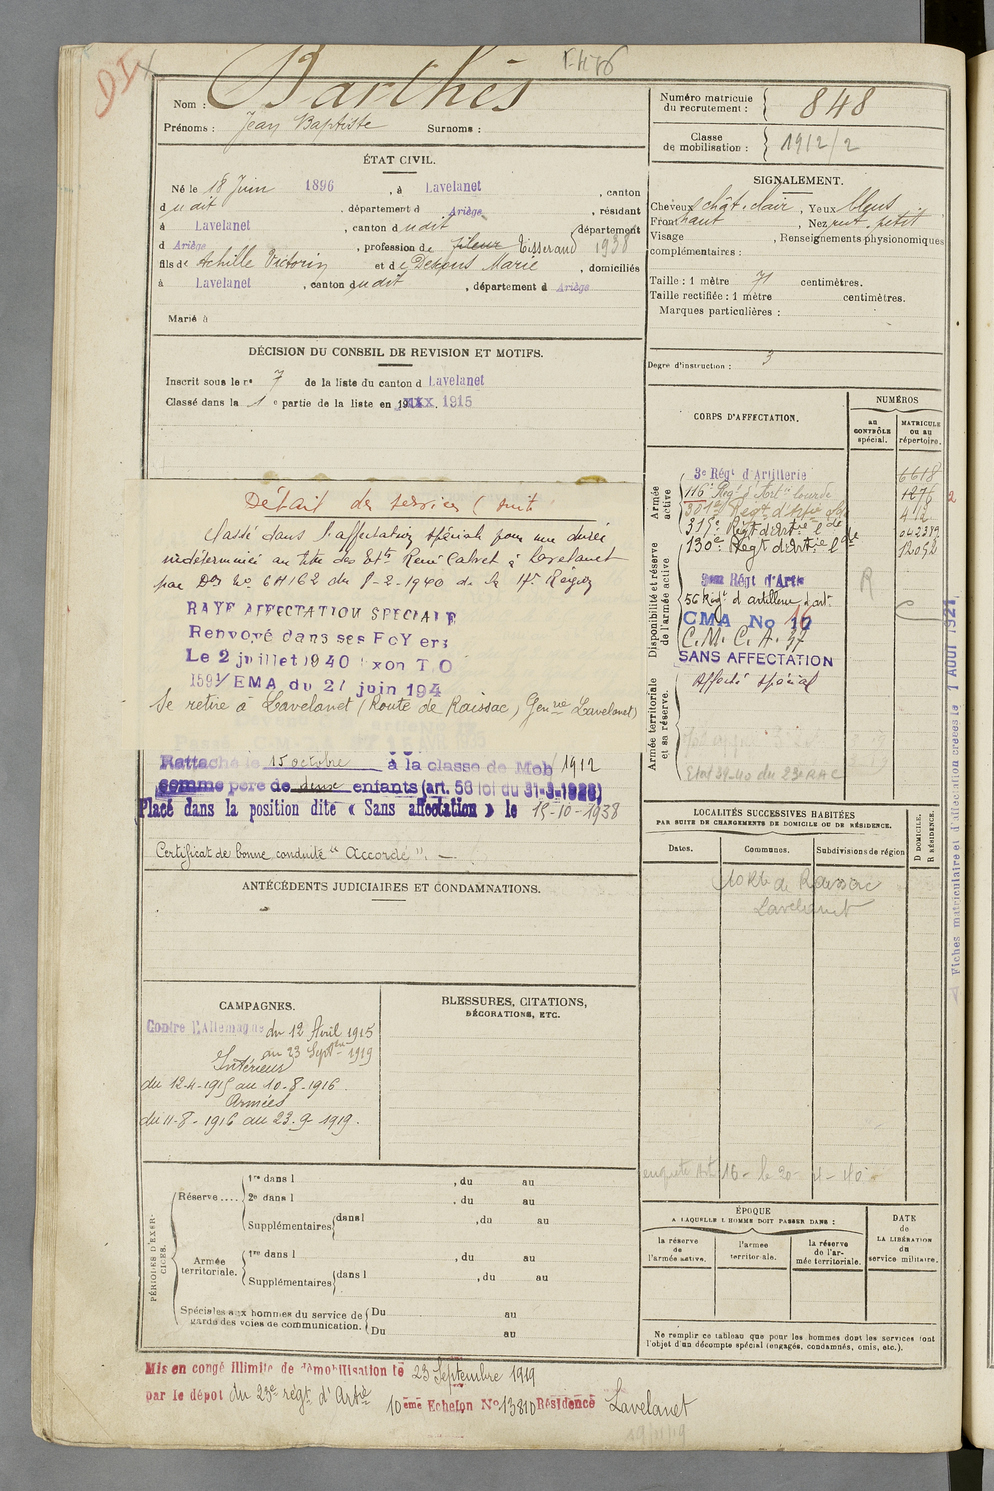 DI
Nom : Barthès
Prénoms : Jean Baptiste Surnoms :
Numéro matricule du recrutement : 848
Classe de mobilisation : 1912/2
ÉTAT CIVIL.
Né le 18 Juin 1896, à Lavelanet, canton
dudit, département d Ariège, résidant
à Lavelanet, canton dudit, département
d Ariège, profession de fileur Tisserand 1938
fils de Achille Victorin et de Marie, domiciliés
à Lavelanet, canton dudit, département d Ariège
Marié à
SIGNALEMENT.
Cheveux chât. clair, Yeux bleus
Front haut, Nez petit
Visage , Renseignements physionomiques
complémentaires :
Taille : 1 mètre 71 centimètres.
Taille rectifiée : 1 mètre centimètres.
Marques particulières :
Degré d'instruction : 3
DÉCISION DU CONSEIL DE REVISION ET MOTIFS.
Inscrit sous le n° 7 de la liste du canton d Lavelanet
Classé dans la 1e partie de la liste en 19 1915
Détail des services (suite
Classé dans l'affectation spéciale pour une durée
indéterminée au titre des Ets René Calvet à Lavelanet
par Don No 6H162 du 8-2-1940 de la 17e Région
RAYE AFFECTATION SPECIALE
Renvoyé dans ses FoYers
Le 2 juillet 1940 T.O
1591/EMA du 27 juin 194
Se retire à Lavelanet (Route de Raissac) Genrie Lavelanet)
Rattaché le 15 octobre à la classe de Mob 1912
comme père de deux enfants (art. 58 loi du 31-3-1928)
Placé dans la position dite « Sans affectation » le 15-10-1938
Certificat de bonne conduite "Accordé".
CORPS D'AFFECTATION.
NUMÉROS
au CONTRÔLE spécial.
MATRICULE ou au répertoire.
Armée active
3e Régt d'Artillerie 6618
116e Regt d'Arti lourde 1276
301e Régt d'Artie
315e Régt d'Artie lde
130e Régt d'Artie lde 12052
Disponibilité et réserve de l'armée active
Régt d'Artie
R
56 Régt d'artillerie d'art.
CMA No 16
C.M.C.A. 37
SANS AFFECTATION
Armée territoriale et sa réserve.
Affecté spécial
Etat 39-40 du 23e RAC
Fiches matriculaire et d'affectation créées le 1 AOUT 1921
LOCALITÉS SUCCESSIVES HABITÉES
PAR SUITE DE CHANGEMENTS DE DOMICILE OU DE RÉSIDENCE.
Dates. Communes. Subdivisions de région
D DOMICILE.
R RÉSIDENCE.
Rte de Raissac
Lavelanet
ANTÉCÉDENTS JUDICIAIRES ET CONDAMNATIONS.
CAMPAGNES.
Contre l'Allemagne du 12 Avril 1915
au 23 Septbre 1919
Intérieur
du 12-4-1915 au 10-8-1916.
Armées
du 11-8-1916 au 23-9-1919.
BLESSURES, CITATIONS,
DÉCORATIONS, ETC.
PÉRIODES D'EXERCICES.
Réserve ....
1re dans l , du au
2e dans l , du au
Supplémentaires dans l , du au
Armée territoriale.
1re dans l , du au
Supplémentaires dans l , du au
Spéciales aux hommes du service de garde des voies de communication.
Du au
Du au
ÉPOQUE
A LAQUELLE L'HOMME DOIT PASSER DANS :
la réserve de l'armée active.
l'armée territoriale.
la réserve de l'armée territoriale.
DATE de LA LIBÉRATION du service militaire.
Ne remplir ce tableau que pour les hommes dont les services font
l'objet d'un décompte spécial (engagés, condamnés, omis, etc.).
Mis en congé illimité de démobilisation le 23 Septembre 1919
par le dépôt du 23e régt d'Artie 10ème Echelon No 13810 Résidence Lavelanet